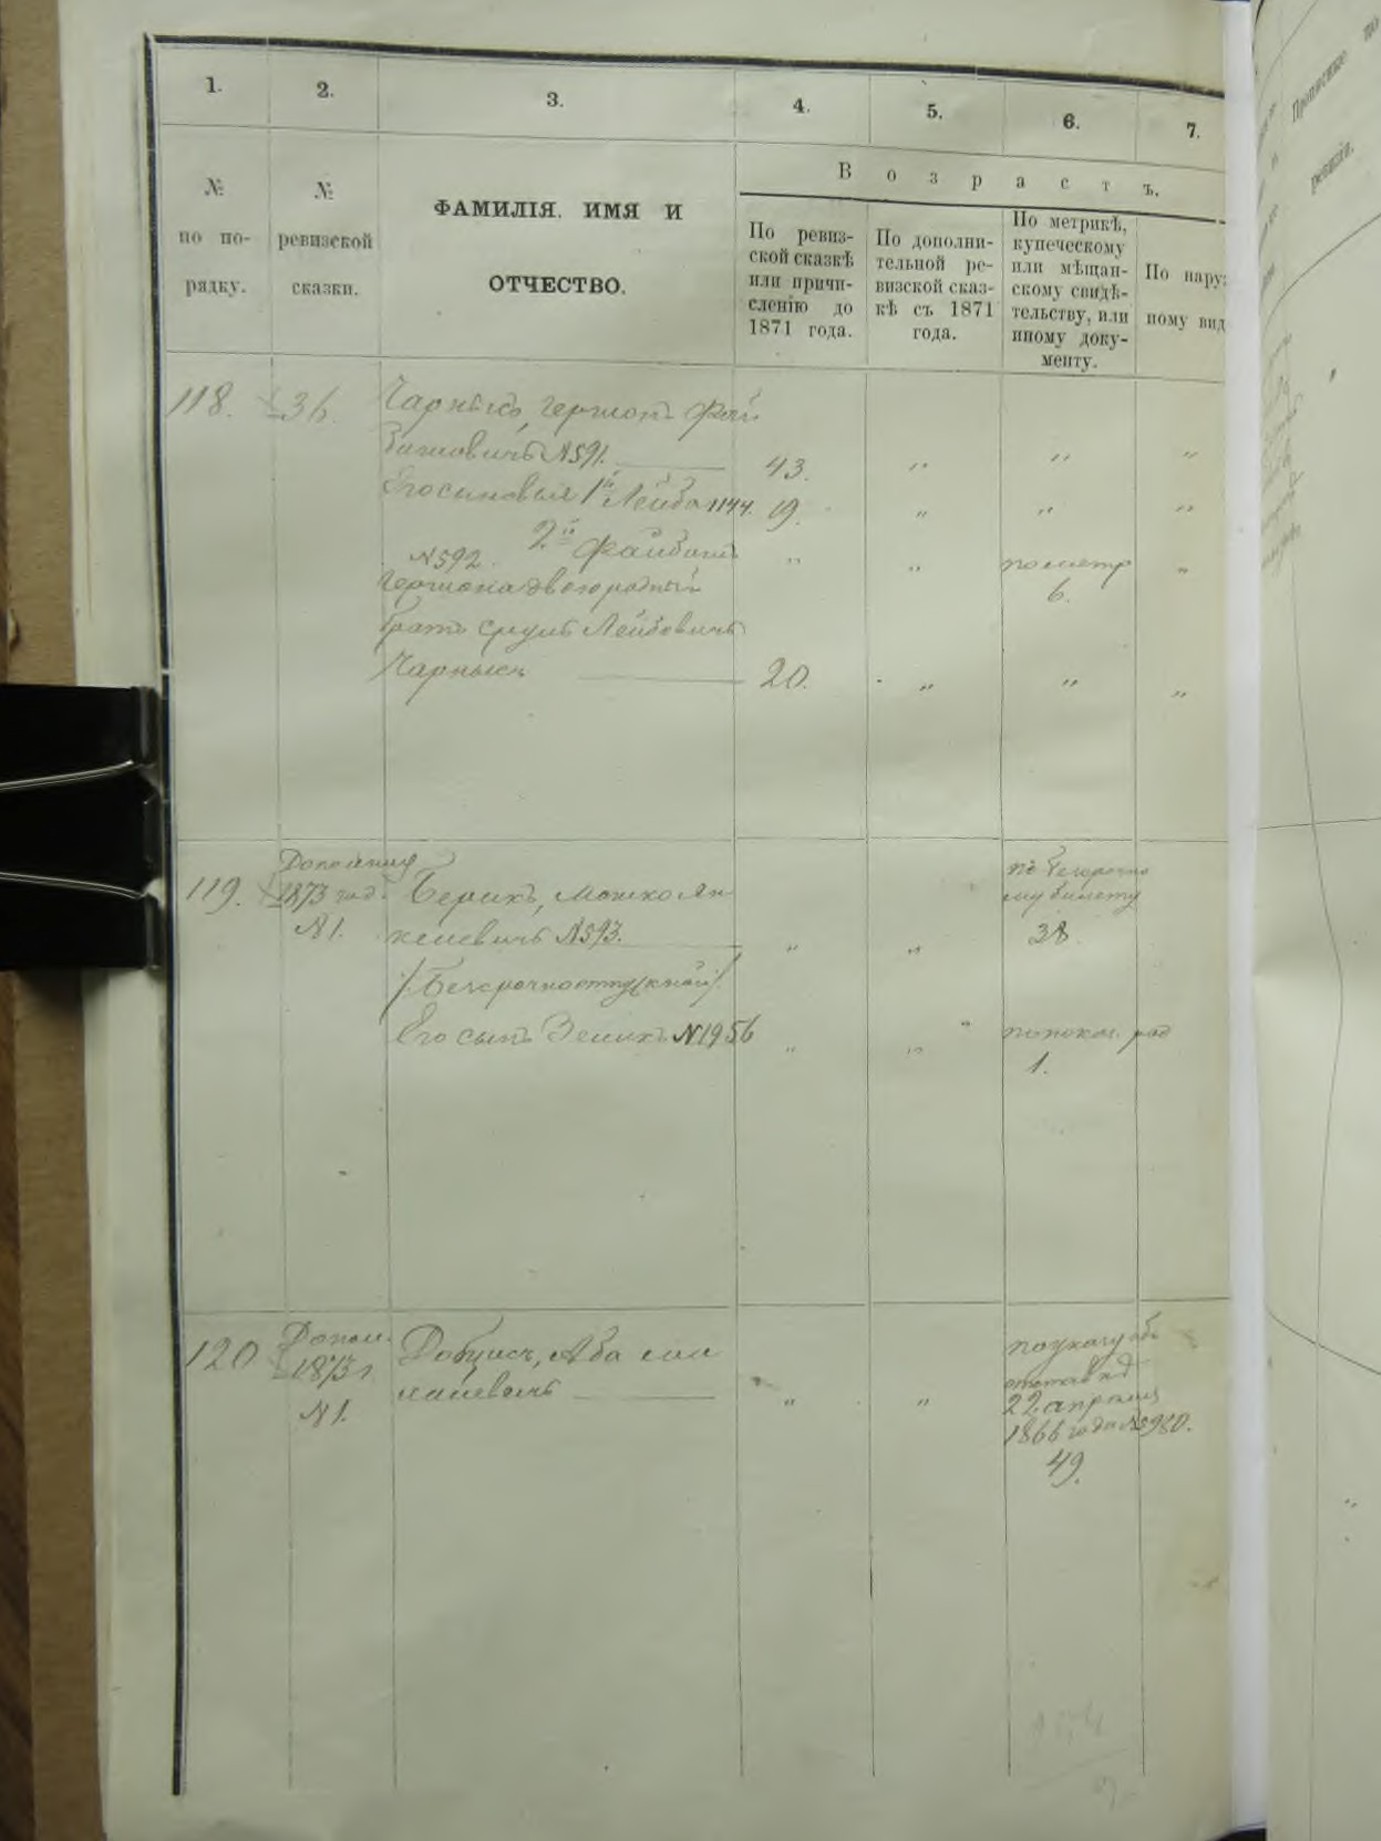 1. 2. 3. 4. 5. 6. 7.
№ по по- рядку.
№ ревизской сказки.
ФАМИЛІЯ, ИМЯ И
ОТЧЕСТВО.
Возрастъ.
По ревиз-
ской сказкѣ
или причи-
сленію до
1871 года.
По дополни-
тельной ре-
визской сказ-
кѣ съ 1871
года.
По метрикѣ,
купеческому
или мѣщан-
скому свидѣ-
тельству, или
иному доку-
менту.
По наруж
ному вид
118. 36. Чарныхъ, Гершонъ Фай
бишовичъ №591. 43. " " "
Его сыновья 1й Лейба 1144. 19. " " "
2й Файбишъ
№592. " " по метр "
6.
Гершона двоюродный
братъ Сруль Лейбовичъ
Чарныхъ 20. " " "
119. 1873 год. Берикъ, Мошко Ян
№1. келевичъ №593. " "
по безсрочно
му билету
38.
/Безсрочноотпускной/
Его сынъ Зеликъ №1956 " "
1.
120 Допол.
1873 г.
№1.
Аба
" "
по указу объ
отставкѣ
22 апрѣля
1866 года №980.
49.
Прописаніе по
ревизіи.